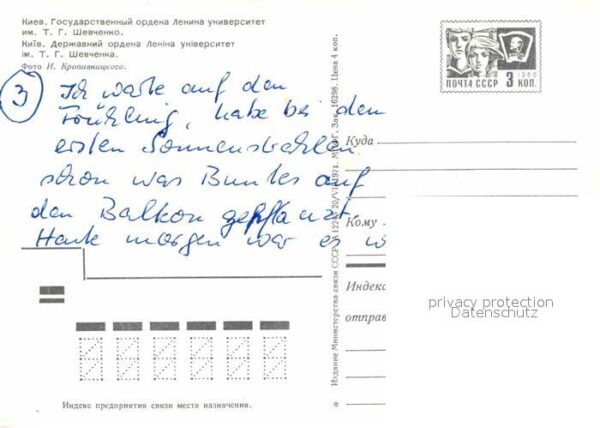 Киев. Государственный ордена Ленина университет
им. Т. Г. Шевченко.
Київ. Державний ордена Леніна університет
ім. Т. Г. Шевченка.
Фото И. Кропивницкого.
3
Ich warte auf den
Frühling, habe bei den
ersten Sonnenstrahlen
schon was Buntes auf
den Balkon gepflanzt.
Heute morgen war es w
Издание Министерства связи СССР. 1971. Зак. 16298. Цена 4 коп.
1966
ПОЧТА СССР 3 коп.
Куда
Кому
Индекс
отправ
privacy protection
Datenschutz
Индекс предприятия связи места назначения.